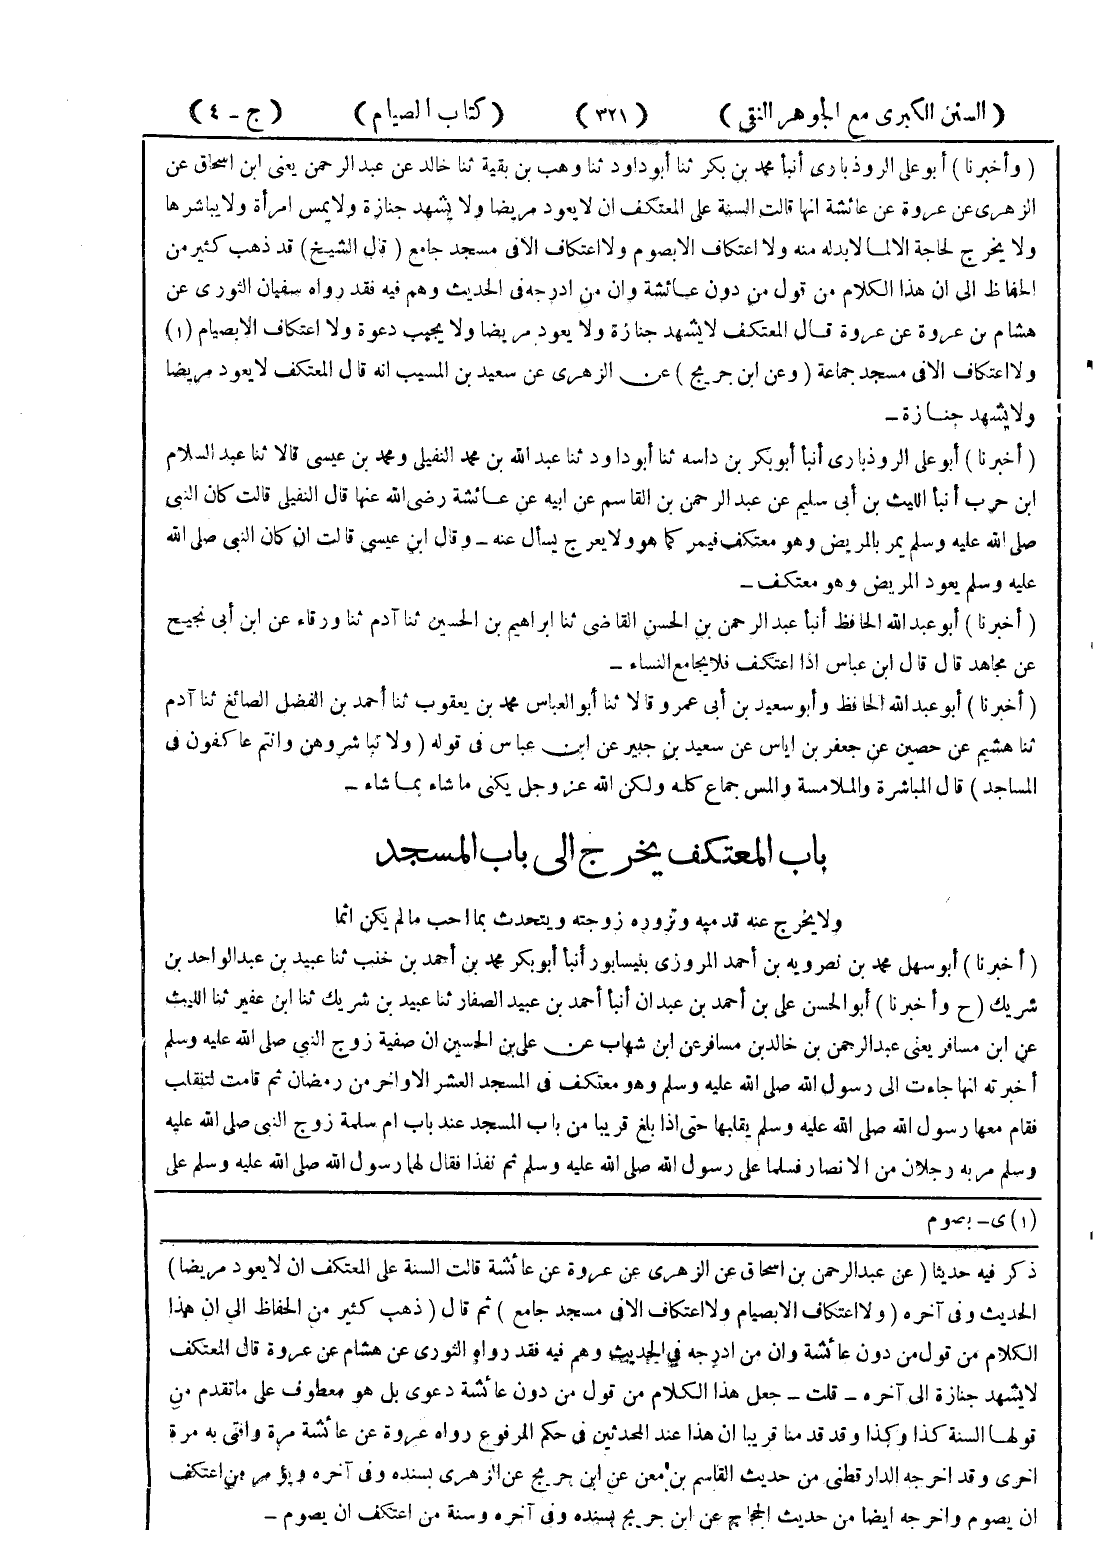 ( السنن الكبرى مع الجوهر النقى ) ( ٣٢١ ) ( كتاب الصيام ) ( ج - ٤ )
( وأخبرنا ) أبو على الروذبارى أنبأ محمد بن بكر ثنا أبو داود ثنا وهب بن بقية ثنا خالد عن عبد الرحمن يعنى ابن اسحاق عن
الزهرى عن عروة عن عائشة انها قالت السنة على المعتكف ان لا يعود مريضا ولا يشهد جنازة ولا يمس امرأة ولا يباشرها
ولا يخرج لحاجة الا لما لا بد له منه ولا اعتكاف الا بصوم ولا اعتكاف الا فى مسجد جامع ( قال الشيخ ) قد ذهب كثير من
الحفاظ الى ان هذا الكلام من قول من دون عائشة وان من ادرجه فى الحديث وهم فيه فقد رواه سفيان الثورى عن
هشام بن عروة عن عروة قال المعتكف لا يشهد جنازة ولا يعود مريضا ولا يجيب دعوة ولا اعتكاف الا بصيام (١)
ولا اعتكاف الا فى مسجد جماعة ( وعن ابن جريج ) عن الزهرى عن سعيد بن المسيب انه قال المعتكف لا يعود مريضا
ولا يشهد جنازة -
( أخبرنا ) أبو على الروذبارى أنبأ أبو بكر بن داسه ثنا أبو داود ثنا عبد الله بن محمد النفيلى ومحمد بن عيسى قالا ثنا عبد السلام
ابن حرب أنبأ الليث بن أبى سليم عن عبد الرحمن بن القاسم عن ابيه عن عائشة رضى الله عنها قال النفيلى قالت كان النبى
صلى الله عليه وسلم يمر بالمريض وهو معتكف فيمر كما هو ولا يعرج يسأل عنه - وقال ابن عيسى قالت ان كان النبى صلى الله
عليه وسلم يعود المريض وهو معتكف -
( أخبرنا ) أبو عبد الله الحافظ أنبأ عبد الرحمن بن الحسن القاضى ثنا ابراهيم بن الحسين ثنا آدم ثنا ورقاء عن ابن أبى نجيح
عن مجاهد قال قال ابن عباس اذا اعتكف فلا يجامع النساء -
( أخبرنا ) أبو عبد الله الحافظ وأبو سعيد بن أبى عمرو قالا ثنا أبو العباس محمد بن يعقوب ثنا أحمد بن الفضل الصائغ ثنا آدم
ثنا هشيم عن حصين عن جعفر بن اياس عن سعيد بن جبير عن ابن عباس فى قوله ( ولا تباشروهن وانتم عاكفون فى
المساجد ) قال المباشرة والملامسة والمس جماع كله ولكن الله عز وجل يكنى ما شاء بما شاء -
باب المعتكف يخرج الى باب المسجد
ولا يخرج عنه قدميه وتزوره زوجته ويتحدث بما احب ما لم يكن اثما
( أخبرنا ) أبو سهل محمد بن نصرويه بن أحمد المروزى بنيسابور أنبأ أبو بكر محمد بن أحمد بن خنب ثنا عبيد بن عبد الواحد بن
شريك ( ح وأخبرنا ) أبو الحسن على بن أحمد بن عبدان أنبأ أحمد بن عبيد الصفار ثنا عبيد بن شريك ثنا ابن عفير ثنا الليث
عن ابن مسافر يعنى عبد الرحمن بن خالد بن مسافر عن ابن شهاب عن على بن الحسين ان صفية زوج النبى صلى الله عليه وسلم
أخبرته انها جاءت الى رسول الله صلى الله عليه وسلم وهو معتكف فى المسجد العشر الاواخر من رمضان ثم قامت لتنقلب
فقام معها رسول الله صلى الله عليه وسلم يقلبها حتى اذا بلغ قريبا من باب المسجد عند باب ام سلمة زوج النبى صلى الله عليه
وسلم مر به رجلان من الانصار فسلما على رسول الله صلى الله عليه وسلم ثم نفذا فقال لهما رسول الله صلى الله عليه وسلم على
(١) ى - بصوم
ذكر فيه حديثا ( عن عبد الرحمن بن اسحاق عن الزهرى عن عروة عن عائشة قالت السنة على المعتكف ان لا يعود مريضا )
الحديث وفى آخره ( ولا اعتكاف الا بصيام ولا اعتكاف الا فى مسجد جامع ) ثم قال ( ذهب كثير من الحفاظ الى ان هذا
الكلام من قول من دون عائشة وان من ادرجه فى الحديث وهم فيه فقد رواه الثورى عن هشام عن عروة قال المعتكف
لا يشهد جنازة الى آخره - قلت - جعل هذا الكلام من قول من دون عائشة دعوى بل هو معطوف على ما تقدم من
قولها السنة كذا وكذا وقد قدمنا قريبا ان هذا عند المحدثين فى حكم المرفوع رواه عروة عن عائشة مرة وافتى به مرة
اخرى وقد اخرجه الدارقطنى من حديث القاسم بن معن عن ابن جريج عن الزهرى بسنده وفى آخره ويؤمر من اعتكف
ان يصوم واخرجه ايضا من حديث الحجاج عن ابن جريج بسنده وفى آخره وسنة من اعتكف ان يصوم -